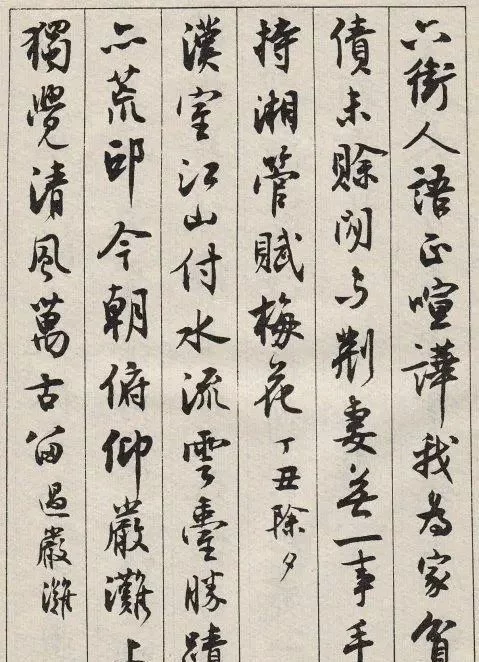 六街人語正喧譁我為家貧
債未賖閑与荆妻無一事手
持湘管賦梅花丁丑除夕
漢室江山付水流雲臺勝蹟
亦荒邱今朝俯仰嚴灘上
獨覺清風萬古留過嚴灘